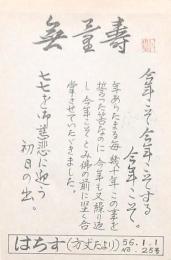 無量壽
今年こそ今年こそする
今年こそ。
年あらたまる毎幾十年この事を
誓った筈なのに今年も又繰り返
し今年こそとみ佛の前に堅く合
掌させていただきました。
七七を御慈悲に迎う
初日の出。
はちす(方丈だより)
56.1.1
No.25号